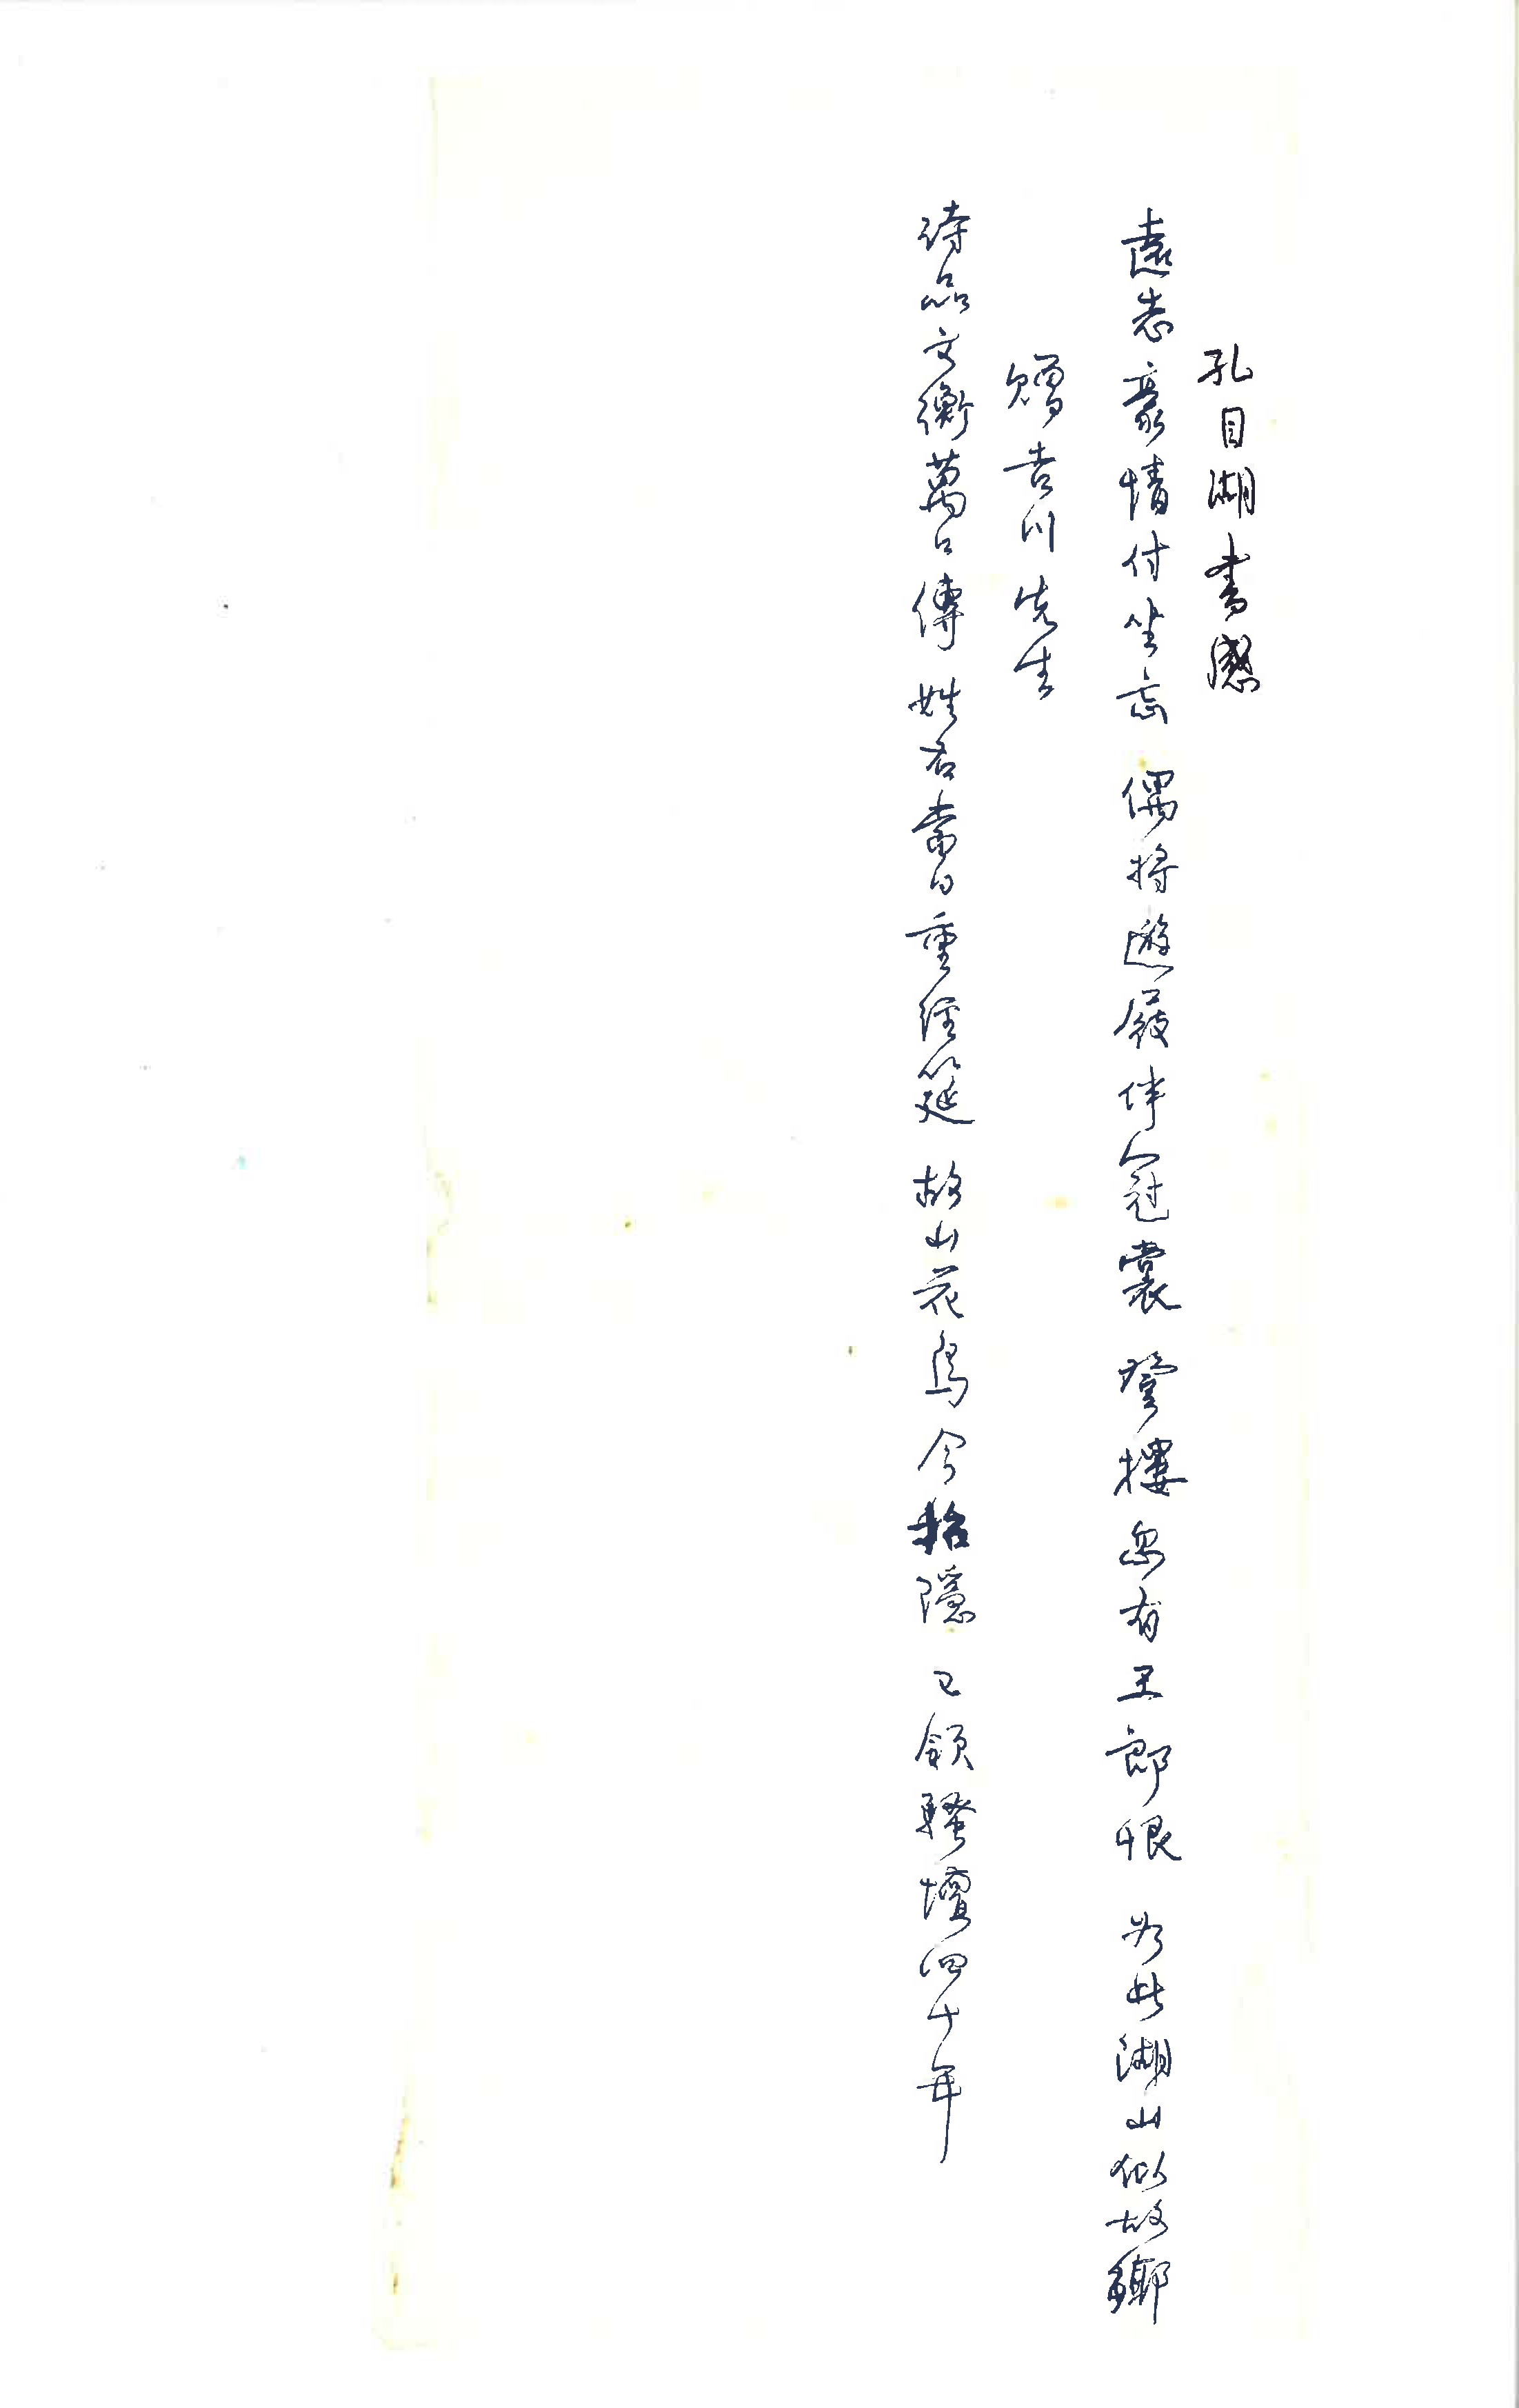 孔目湖書感
遠志豪情付坐忘 偶將遊屐伴冠裳 登樓忽有王郎恨 為此湖山似故鄉
贈吉川先生
詩品文衡萬口傳 姓名當日重經筵 故山花鳥今招隱 已領騷壇四十年